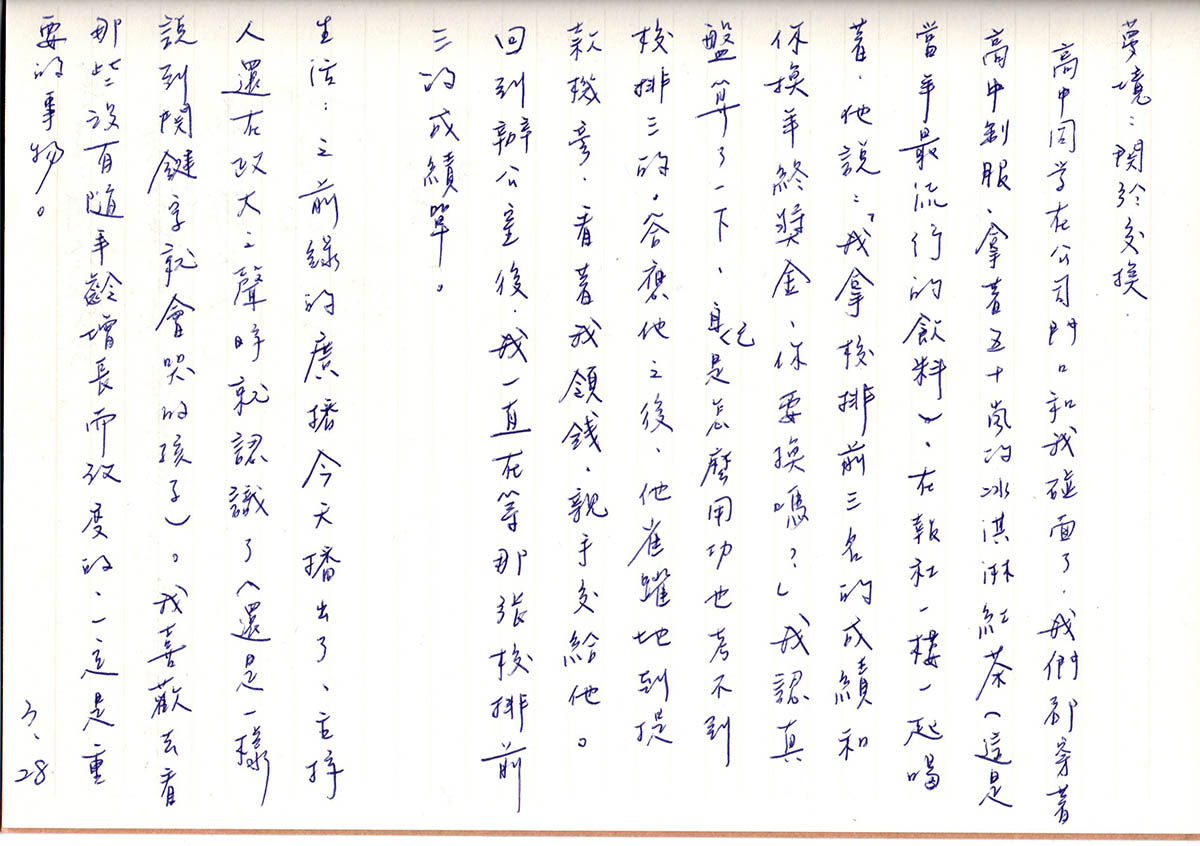 夢境：關於交換
高中同學在公司門口和我碰面了，我們都穿著
高中制服、拿著五十嵐的冰淇淋紅茶（這是
當年最流行的飲料），在報社一樓一起喝
著，他說：「我拿校排前三名的成績和
你換年終獎金，你要換嗎？」我認真
盤算了一下，自己是怎麼用功也考不到
校排三的。答應他之後，他雀躍地到提
款機旁，看著我領錢，親手交給他。
回到辦公室後，我一直在等那張校排前
三的成績單。
生活：之前錄的廣播今天播出了，主持
人還在政大之聲時就認識了（還是一樣
說到關鍵字就會哭的孩子）。我喜歡去看
那些沒有隨年齡增長而改變的，一定是重
要的事物。
3、28